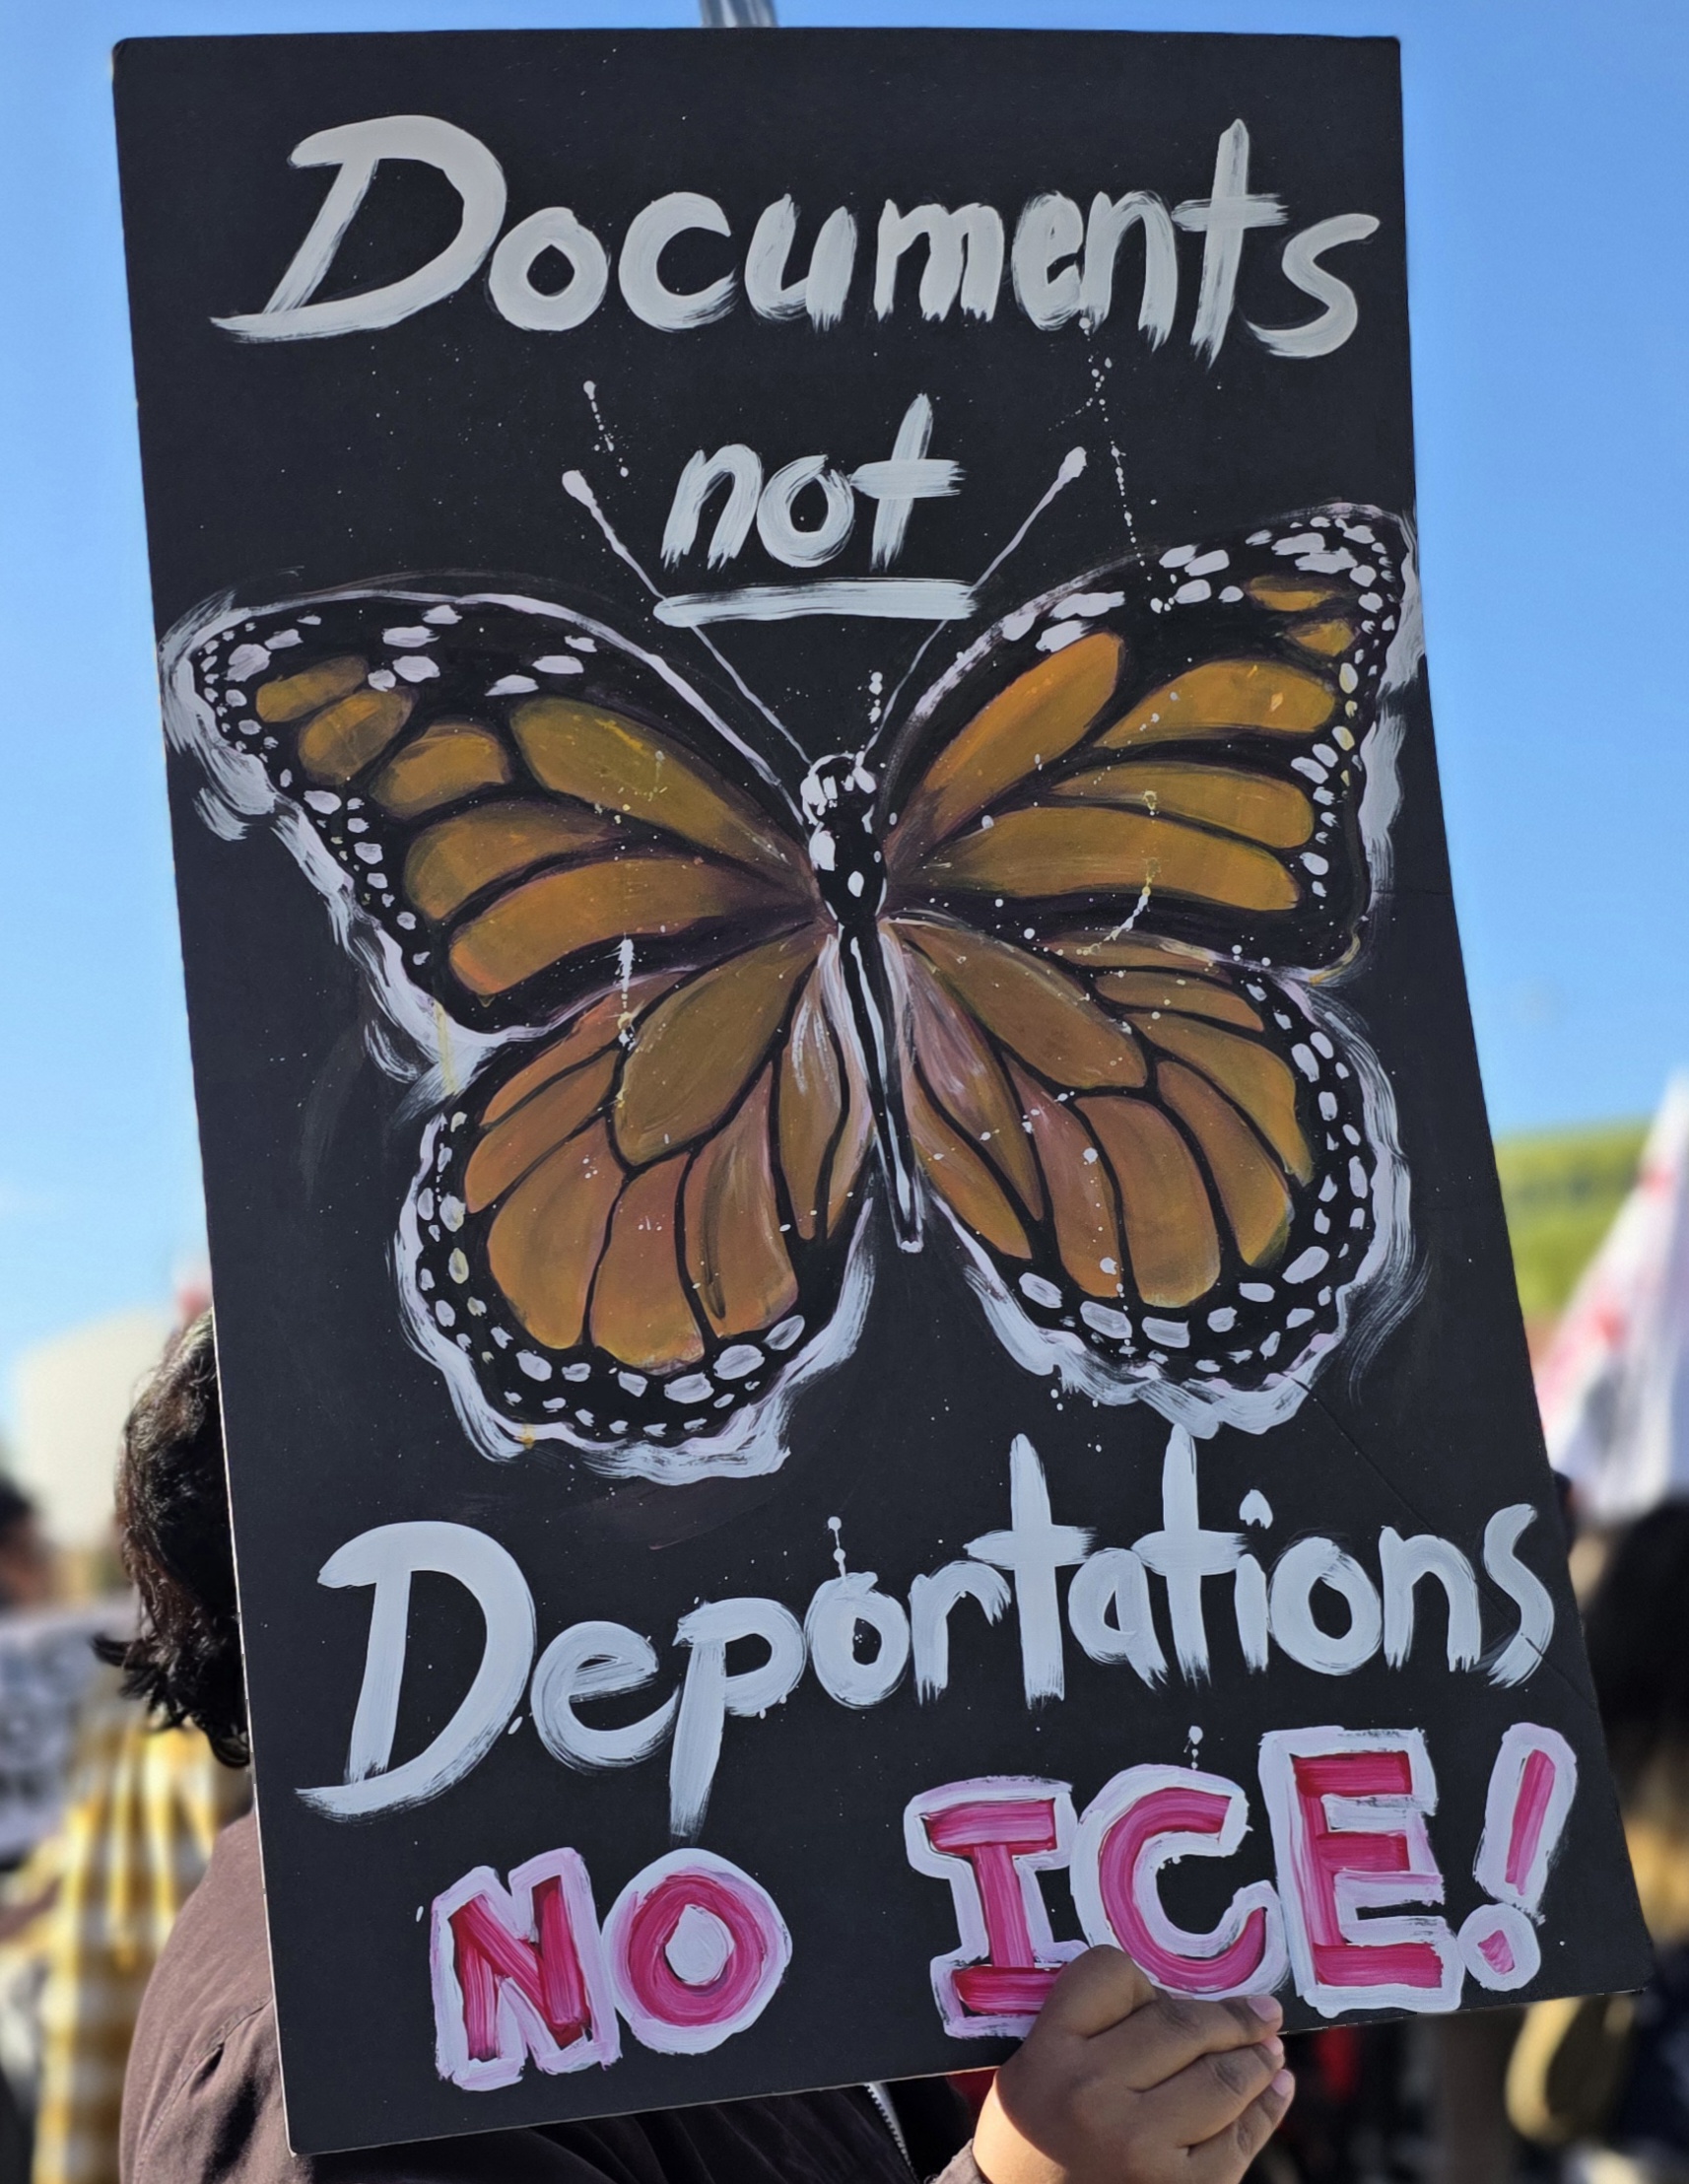 Documents
not
Deportations
NO ICE!